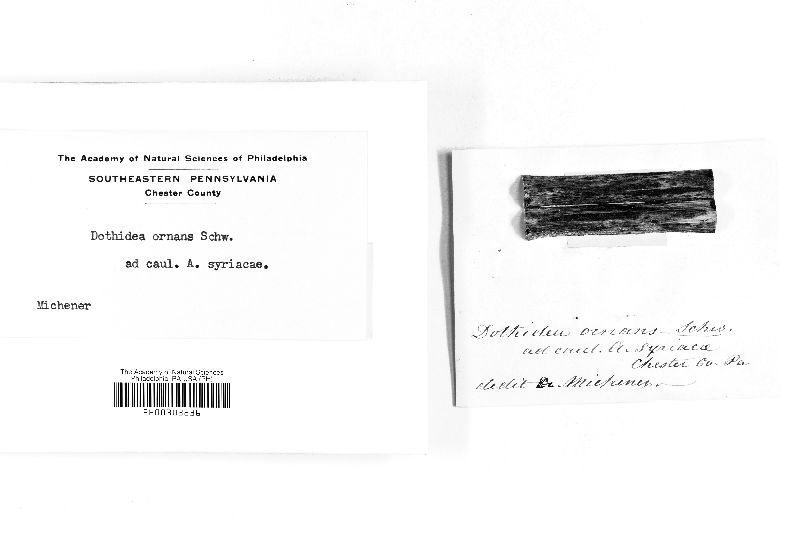 The Academy of Natural Sciences of Philadelphia
SOUTHEASTERN PENNSYLVANIA
Chester County
Dothidea ornans Schw.
ad caul. A. syriacae.
Michener
The Academy of Natural Sciences
Philadelphia, PA, USA (PH)
Dothidea ornans Schw.
ad caul. A. Syriacæ
Chester Co. Pa
dedit Michener.